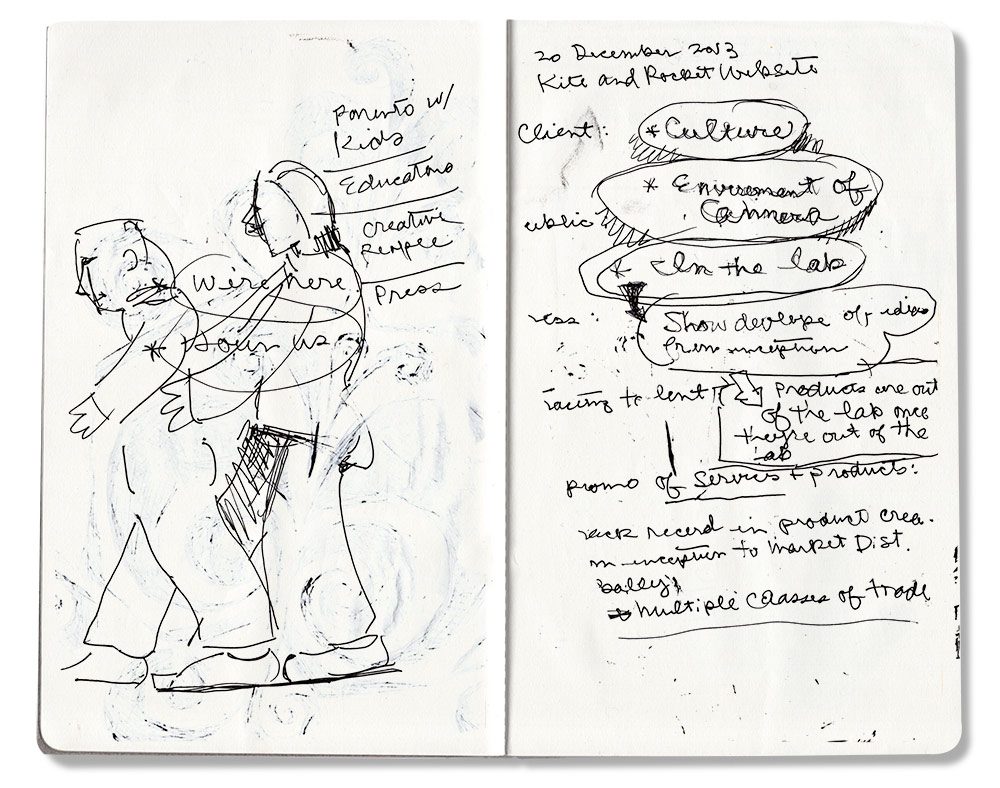 Parents w/
Kids
Educators
Creative
People
Press
* We're here
* Join us
20 December 2013
Kite and Rocket Website
Client:
* Culture
* Enviroment of
ublic
* In the lab
ess :
Show develope of idea
from inception
to
Products are out
of the lab once
they're out of the
lab
promo of Services + products:
record in product crea.
m inception to Market Dist.
→ Multiple Classes of trade